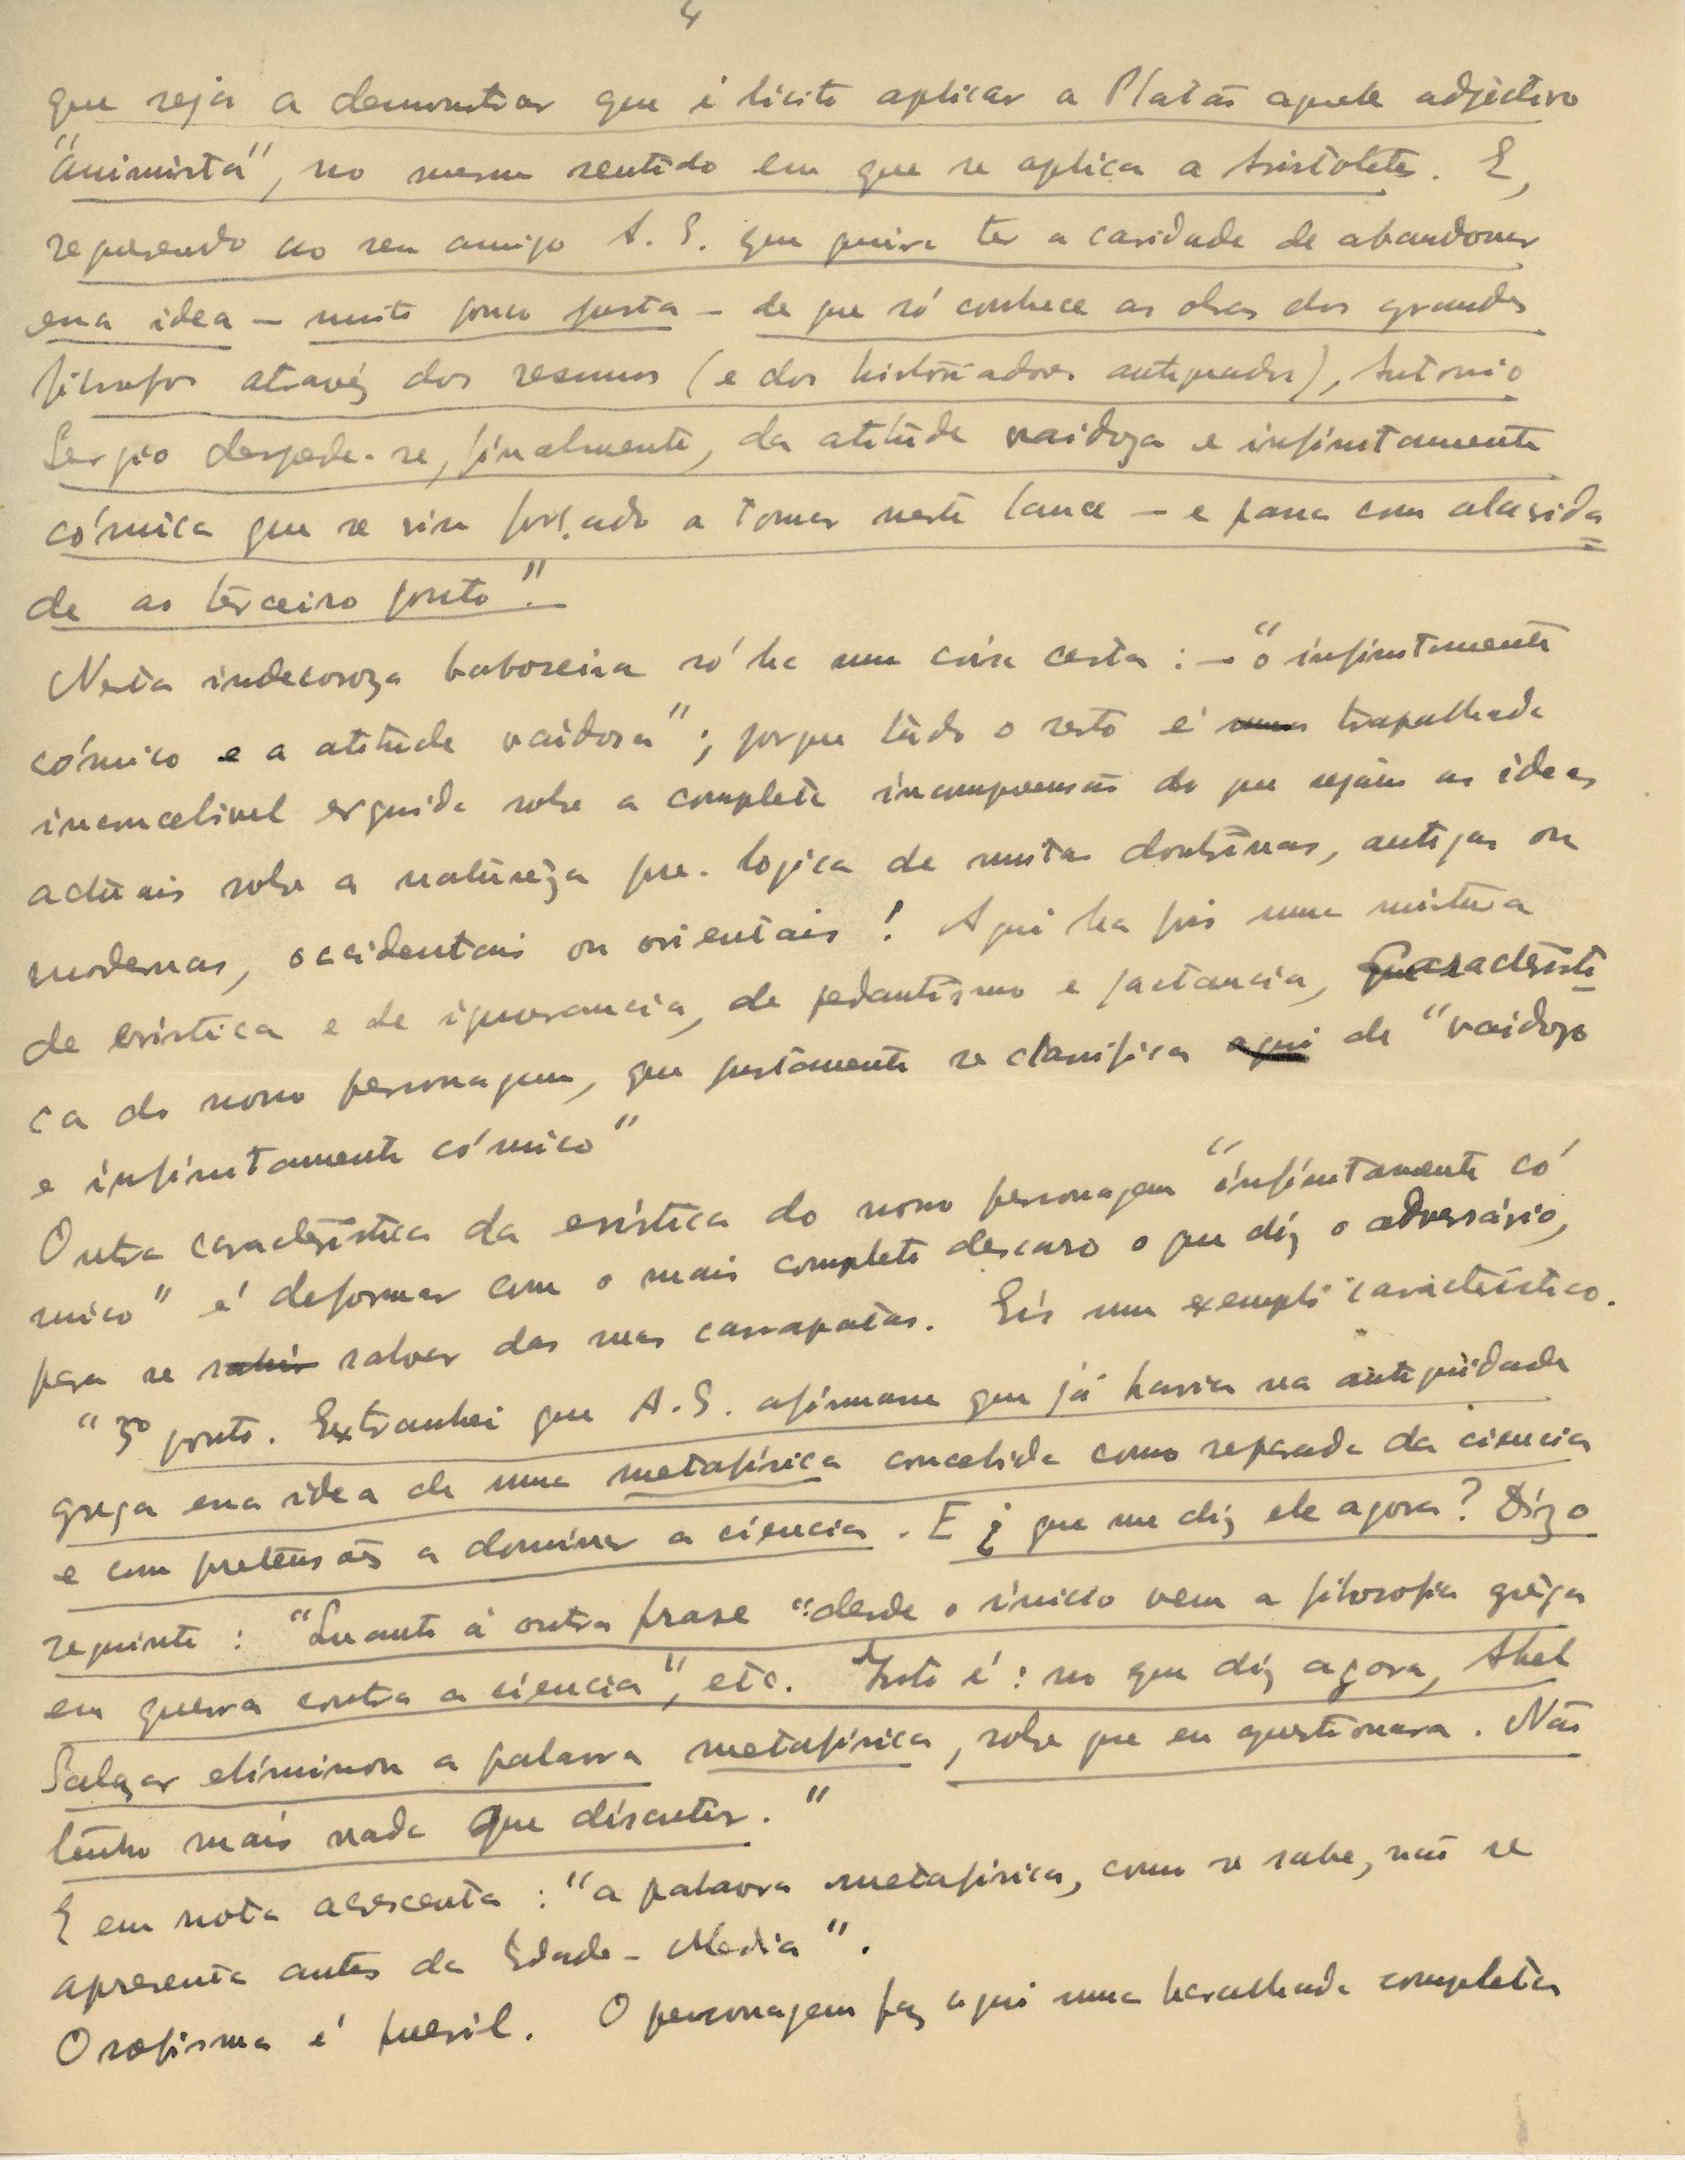 4
que seja a demonstrar que é licito aplicar a Platão aquele adjectivo
"animista", no mesmo sentido em que se aplica a Aristoteles. E,
requerendo ao seu amigo A. S. que queira ter a caridade de abandonar
essa idea – muito pouco justa – de que só conhece as obras dos grandes
filosofos através dos resumos (e dos historiadores antiquados), Antonio
Sergio despede-se, finalmente, da atitude vaidoza e infinitamente
cómica que se viu forçado a tomar neste lance – e passa com alacrida
de ao terceiro ponto."
Nesta indecoroza baboseira só ha uma coisa certa: – "o infinitamente
cómico e a atitude vaidosa"; porque tudo o resto é uma trapalhada
inconcebivel erguida sobre a completa incompreensão do que sejam as ideas
actuais sobre a natureza pre-logica de muitas doutrinas, antigas ou
modernas, occidentais ou orientais! Aqui ha pois uma mistura
de eristica e de ignorancia, de pedantismo e jactancia, caracteristi
ca do nosso personagem, que justamente se classifica aqui de "vaidozo
e infinitamente cómico"
Outra caracteristica da eristica do nosso personagem "infinitamente có
mico" é deformar com o mais completo descaro o que diz o adversário,
para se sahir salvar das suas carrapatas. Eis um exemplo caracteristico.
"3º ponto. Extranhei que A. S. afirmasse que já havia na antiguidade
grega essa idea de uma metafisica concebida como separada da ciencia
e com pretensões a dominar a ciencia. E ¿ que me diz ele agora? Diz o
seguinte: "Quanto á outra frase "desde o inicio vem a filosofia grega
em guerra contra a ciencia", etc. Isto é: no que diz agora, Abel
Salazar eliminou a palavra metafisica, sobre que eu questionara. Não
tenho mais nada que discutir."
E em nota acrescenta: "a palavra metafisica, como se sabe, não se
apresenta antes da Edade-Media".
O sofisma é pueril. O personagem faz aqui uma baralhada completa